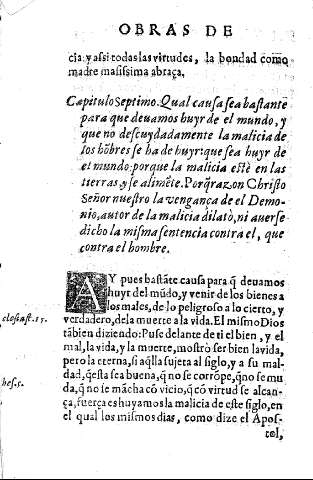 OBRAS DE
cia: y assi todas las virtudes, la bondad como
madre masissima abraça.
Capitulo Septimo. Qual causa sea bastante
para que deuamos huyr de el mundo, y
que no descuydadamente la malicia de
los hõbres se ha de huyr: que sea huyr de
el mundo: porque la malicia estè en las
tierras, y se alimẽte. Porq̃ razon Christo
Señor nuestro la vengança de el Demo-
nio, autor de la malicia dilatò, ni auerse
dicho la misma sentencia contra el, que
contra el hombre.
AY pues bastãte causa para q̃ deuamos
huyr del mũdo, y venir de los bienes a
los males, de lo peligroso a lo cierto, y
verdadero, de la muerte a la vida. El mismo Dios
tãbien diziendo: Puse delante de ti el bien, y el
mal, la vida, y la muerte, mostrò ser bien la vida,
pero la eterna, si aq̃lla sujeta al siglo, y a su mal-
dad, q̃ esta sea buena, q̃ no se corrõpe, q̃ no se mu
da, q̃ no se mãcha cõ vicio, q̃ cõ virtud se alcan-
ça, fuerça es huyamos la malicia de este siglo, en
el qual los mismos dias, como dize el Apos-
tol,
clesiast. 15.
hes. 5.